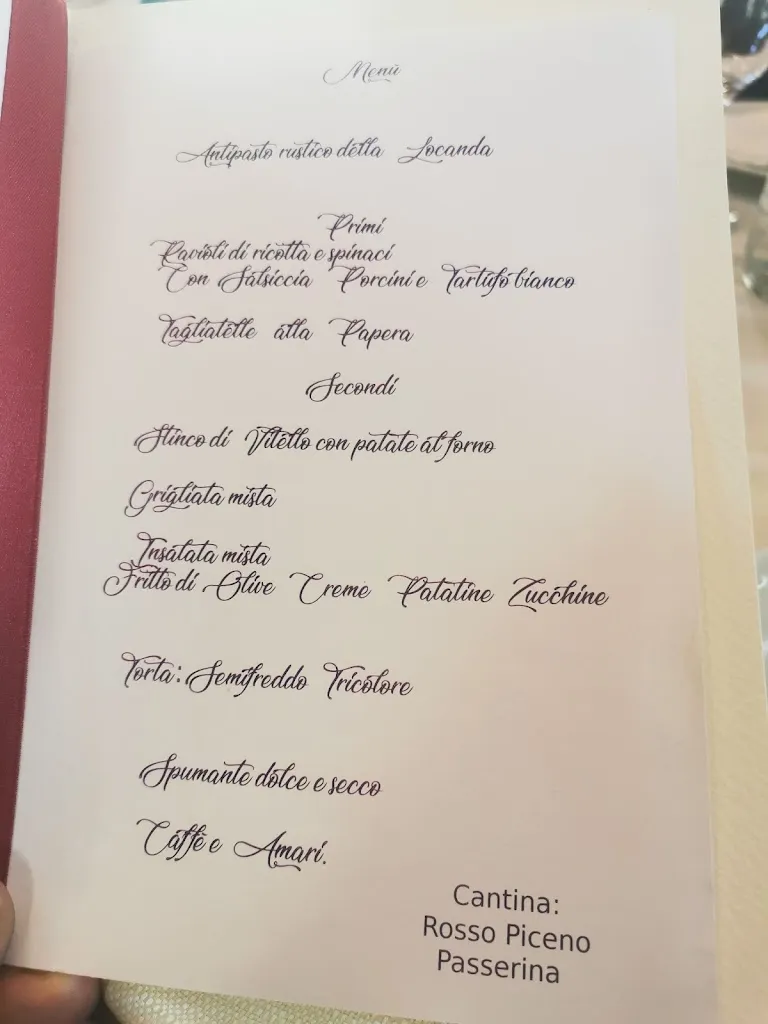 Menù
Antipasto rustico della Locanda
Primi
Ravioli di ricotta e spinaci
Con Salsiccia Porcini e Tartufo bianco
Tagliatelle alla Papera
Secondi
Stinco di Vitello con patate al forno
Grigliata mista
Insalata mista
Fritto di Olive Creme Patatine Zucchine
Torta: Semifreddo Tricolore
Spumante dolce e secco
Caffè e Amari.
Cantina:
Rosso Piceno
Passerina